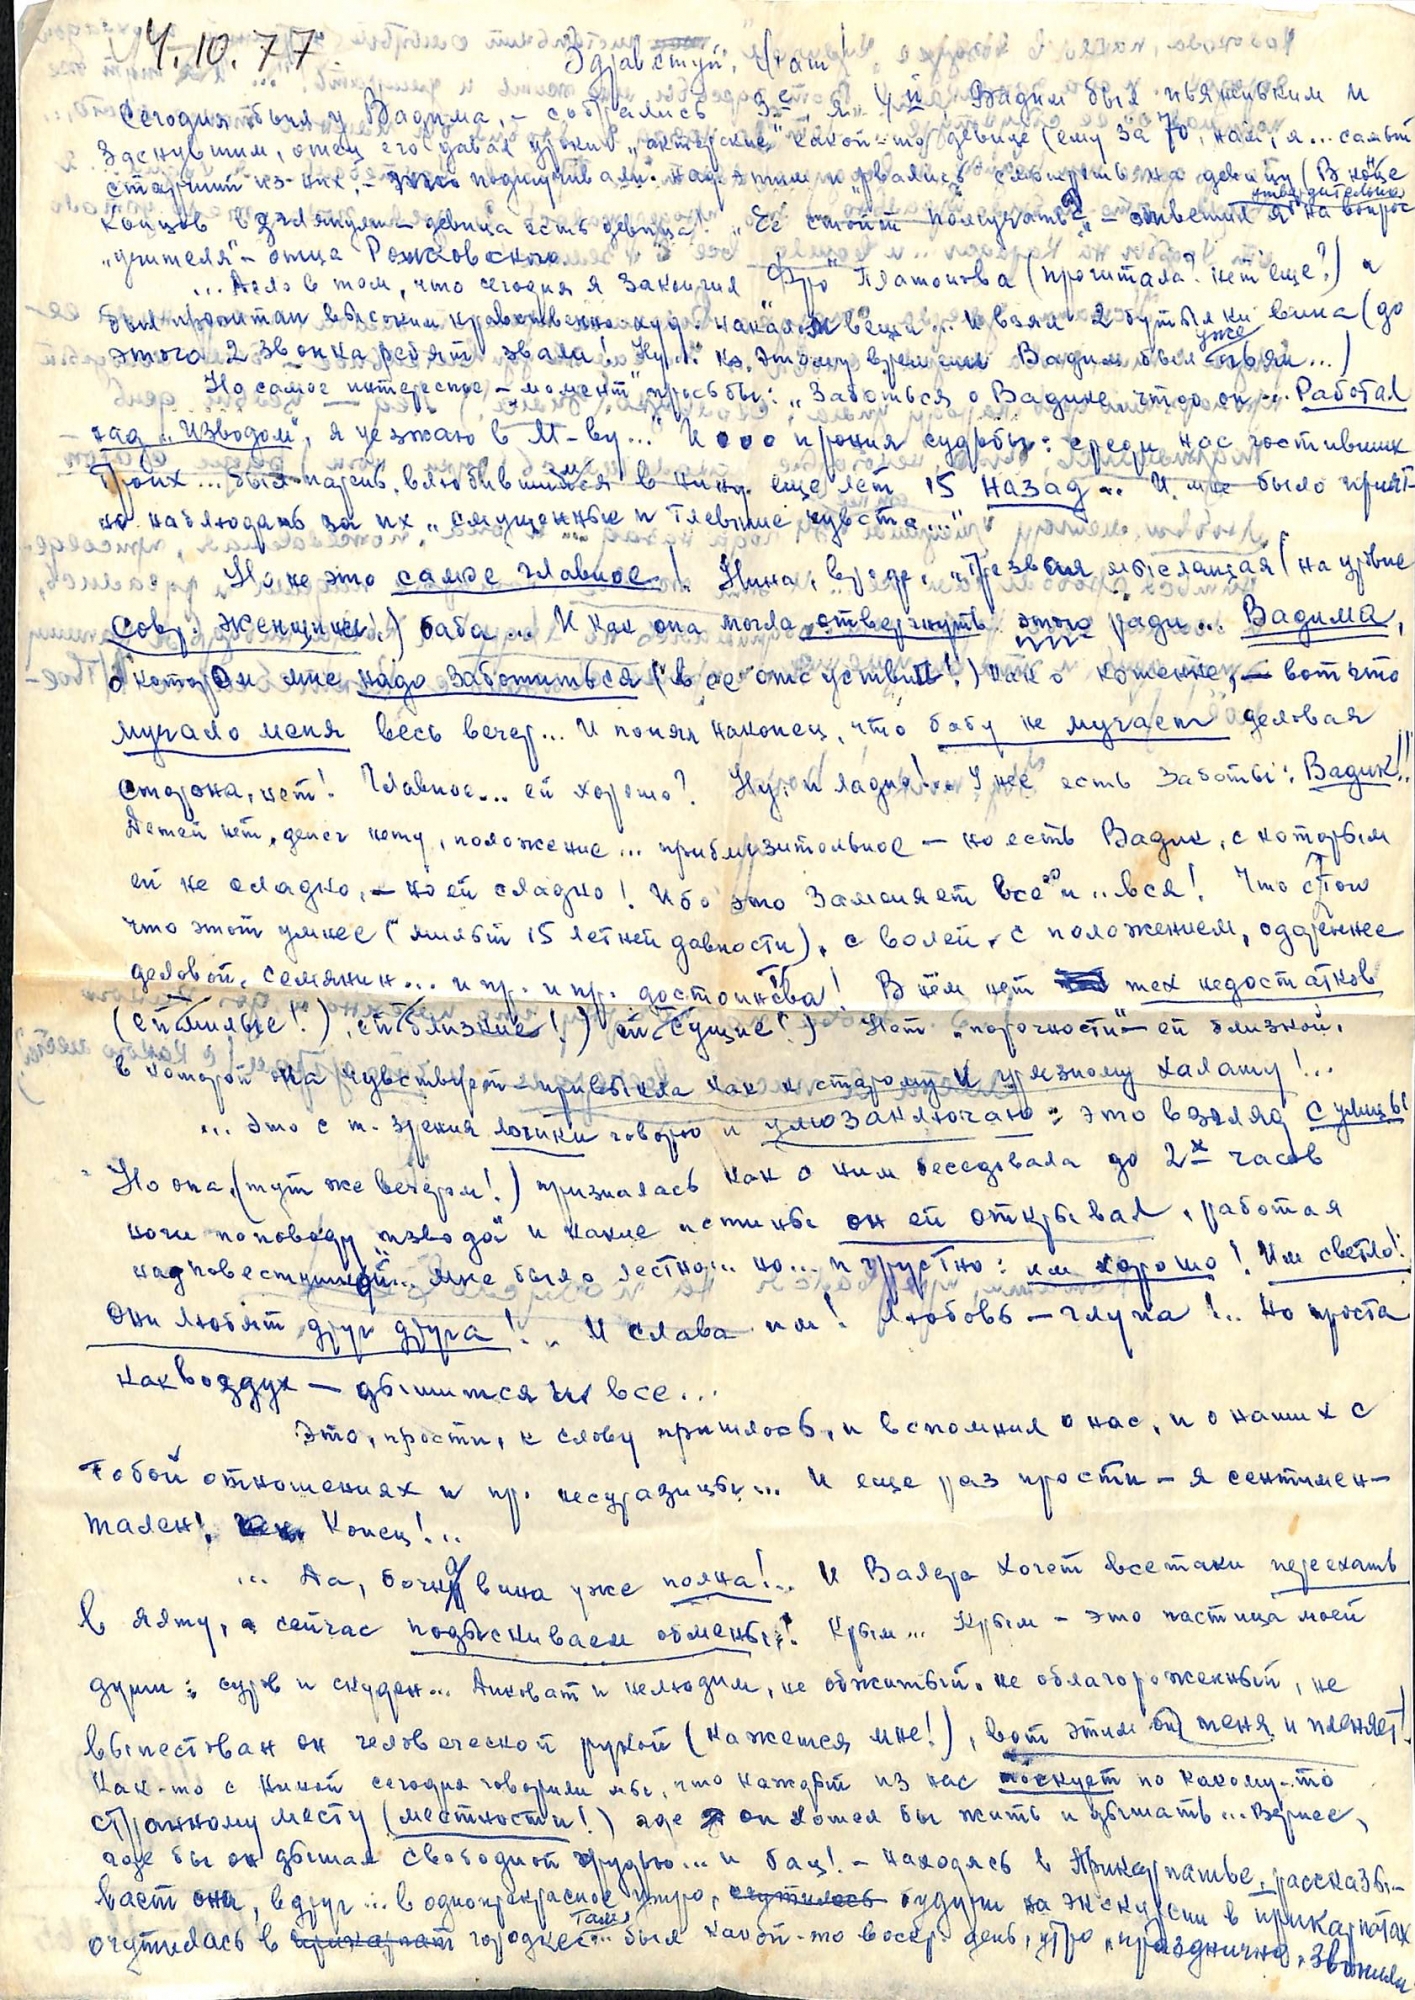 4.10.77
Здравствуй, Нат!
Сегодня был у Вадима, – собрались 3е я – 4й Вадим был пьяненьким и
заснувшим, отец его давал уроки „актерские" какой-то девице (ему за 70, нам, я... самый
старший из них, – подшучивали над этим и рвались смотреть на девицу (В конце
концов взглянули – девица есть девица! „Её стоит помучать", – ответил я утвердительно на вопрос
„учителя" – отца Рожковского.
...Дело в том, что сегодня я закончил „Фро" Платонова (прочитала? нет еще?) и
был пропитан высоким нравственно-худ. накалом вещи... И взял 2 бутылки вина (до
этого 2 звонка ребят звали! Ну... к этому времени Вадим был уже пьян...)
Но самое интересное – момент просьбы: „Заботься о Вадике, чтоб он... Работал
над „Изводом", я уезжаю в М-ву..." И ирония судьбы: среди нас гостивших
троих... был парень, влюбившийся в Нину еще лет 15 назад... И мне было прият-
но наблюдать за их „смущенные и тлевшие чувства..."
Но не это самое главное! Нина, вроде, „трезвая мыслящая (на уровне
совр. женщины!) баба... И как она могла отвергнуть этого ради... Вадима,
о котором мне надо заботиться (в её отсутствии!) как о котенке, – вот что
мучало меня весь вечер... И понял наконец, что бабу не мучает деловая
сторона, нет! Главное... ей хорошо? Ну, и ладно!.. У нее есть заботы: Вадик!!
Детей нет, денег нету, положение... приблизительное – но есть Вадик, с которым
ей не сладко, – но ей сладко! Ибо это заменяет всё и.. вся! Что с того
что этот умнее (милый 15 летней давности), с волей, с положением, одареннее
деловой, семянин... и пр. и пр. достоинства! В нём нет тех недостатков
(ей милые!), ей близкие!) ей сущие!) Нет „порочности" – ей близкой,
в которой она чувствует – привыкла как к старому и грязному халату!...
... Это с т. зрения логики говорю и умозаключаю: это взгляд с улицы
Но она, (тут же вечером!) призналась как о ним беседовала до 2х часов
ночи по поводу „извода" и какие истины он ей открывал, работая
над повестушкой... мне было лестно... но... и грустно: им хорошо! Им светло!
Они любят друг друга!.. И слава им! Любовь – глупа!.. Но проста
как воздух – дышится и все...
Это, прости, к слову пришлось, и вспомнил о нас, и о наших с
тобой отношениях и пр. несуразицы... И еще раз прости – я сентимен-
тален! Конец!..
... Да, бочка вина уже полна!.. И Валера хочет всетаки переехать
в Ялту, а сейчас подыскиваем обмены! Крым... Крым – это частица моей
души: суров и скуден... Диковат и нелюдим, не обжитый, не облагороженный, не
выпестован он человеческой рукой (кажется мне!), вот этим он меня и пленяет!
Как-то с Ниной сегодня говорили мы, что каждый из нас тоскует по какому-то
странному месту (местности!) где он хотел бы жить и дышать... Вернее,
где бы он дышал свободной грудью... и бац! – находясь в Прикарпатье, рассказы-
вает она, вдруг... в одно прекрасное утро, очутилось будучи на экскурсии в прикарпатах
очутилась в прикарпат городке... там был какой-то воскр. день, утро, „празднично, звонили